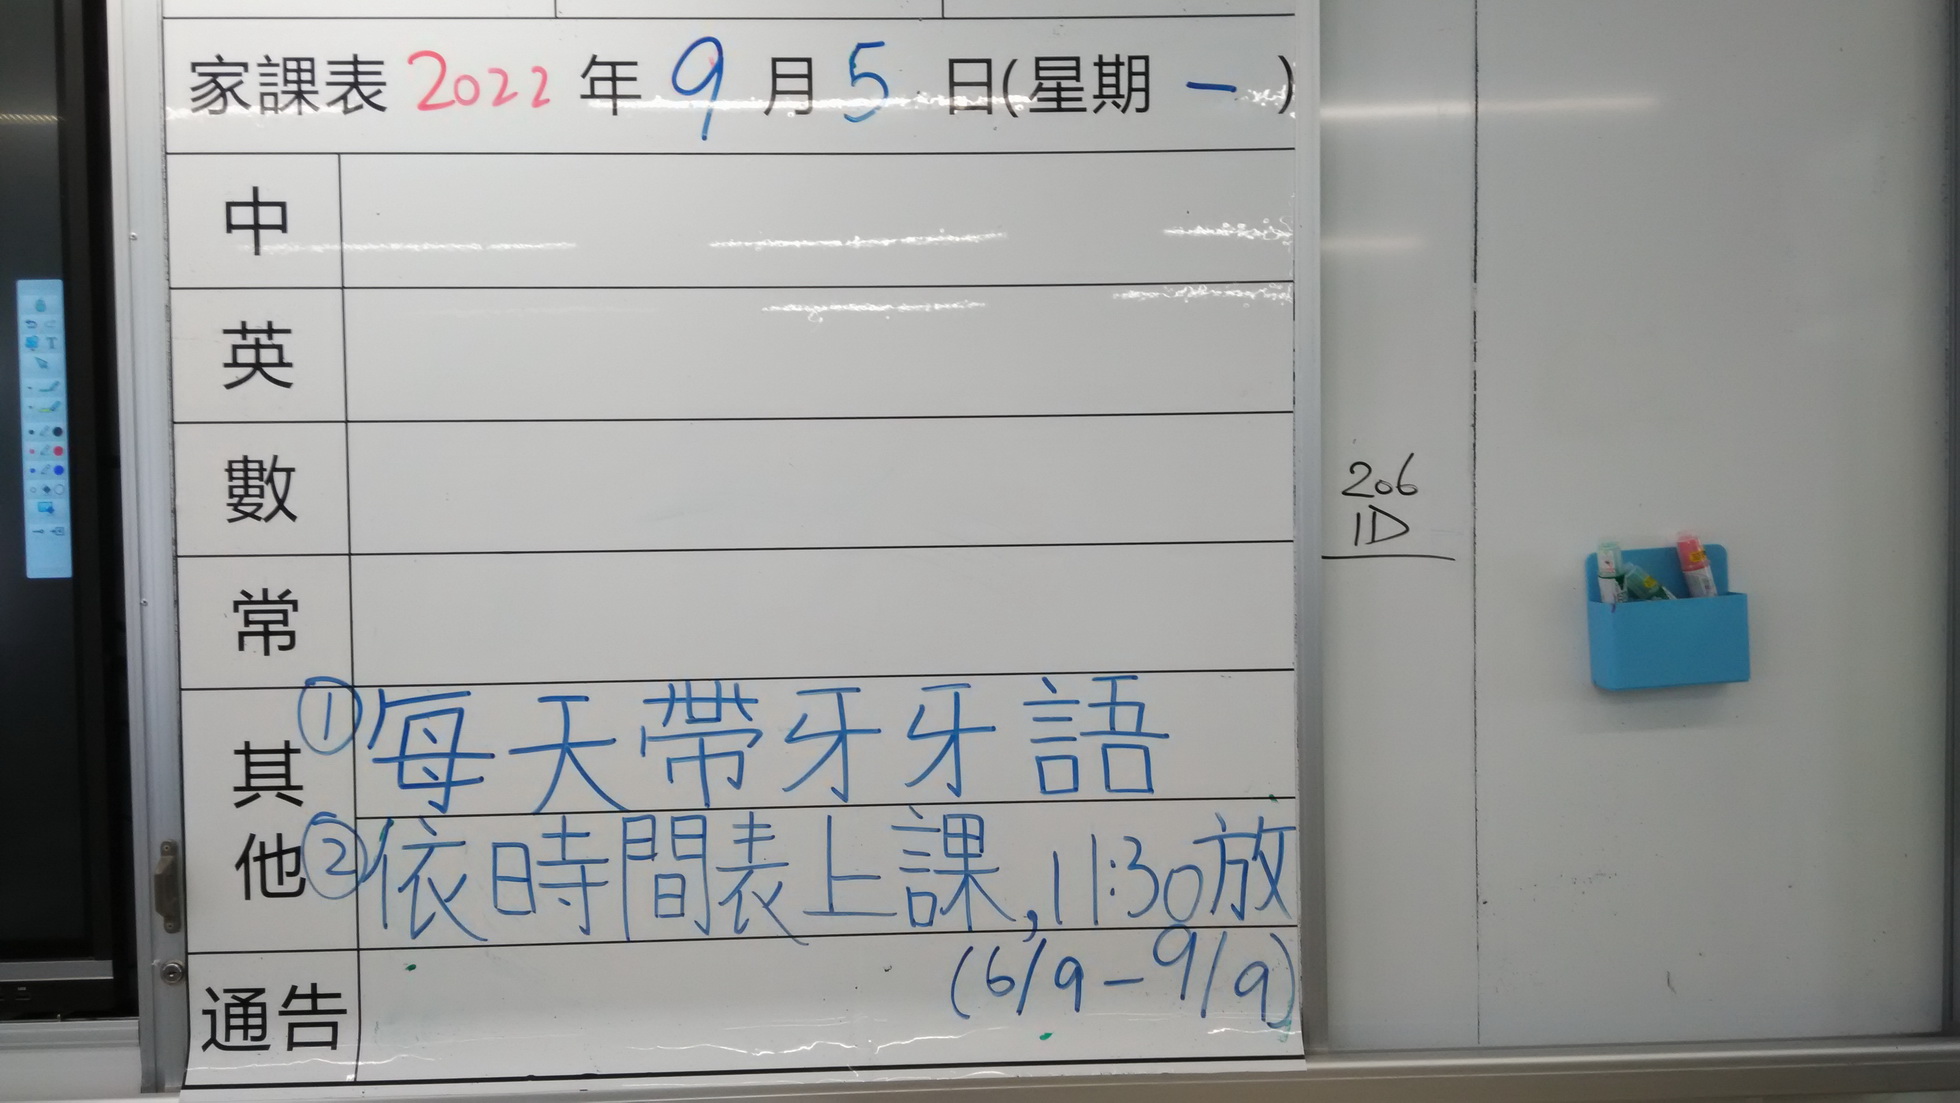 家課表 2022 年 9 月 5 日(星期 一 )
中
英
數
常
其他
① 每天帶牙牙語
② 依時間表上課, 11:30放
(6/9 - 9/9)
通告
206
1D
T